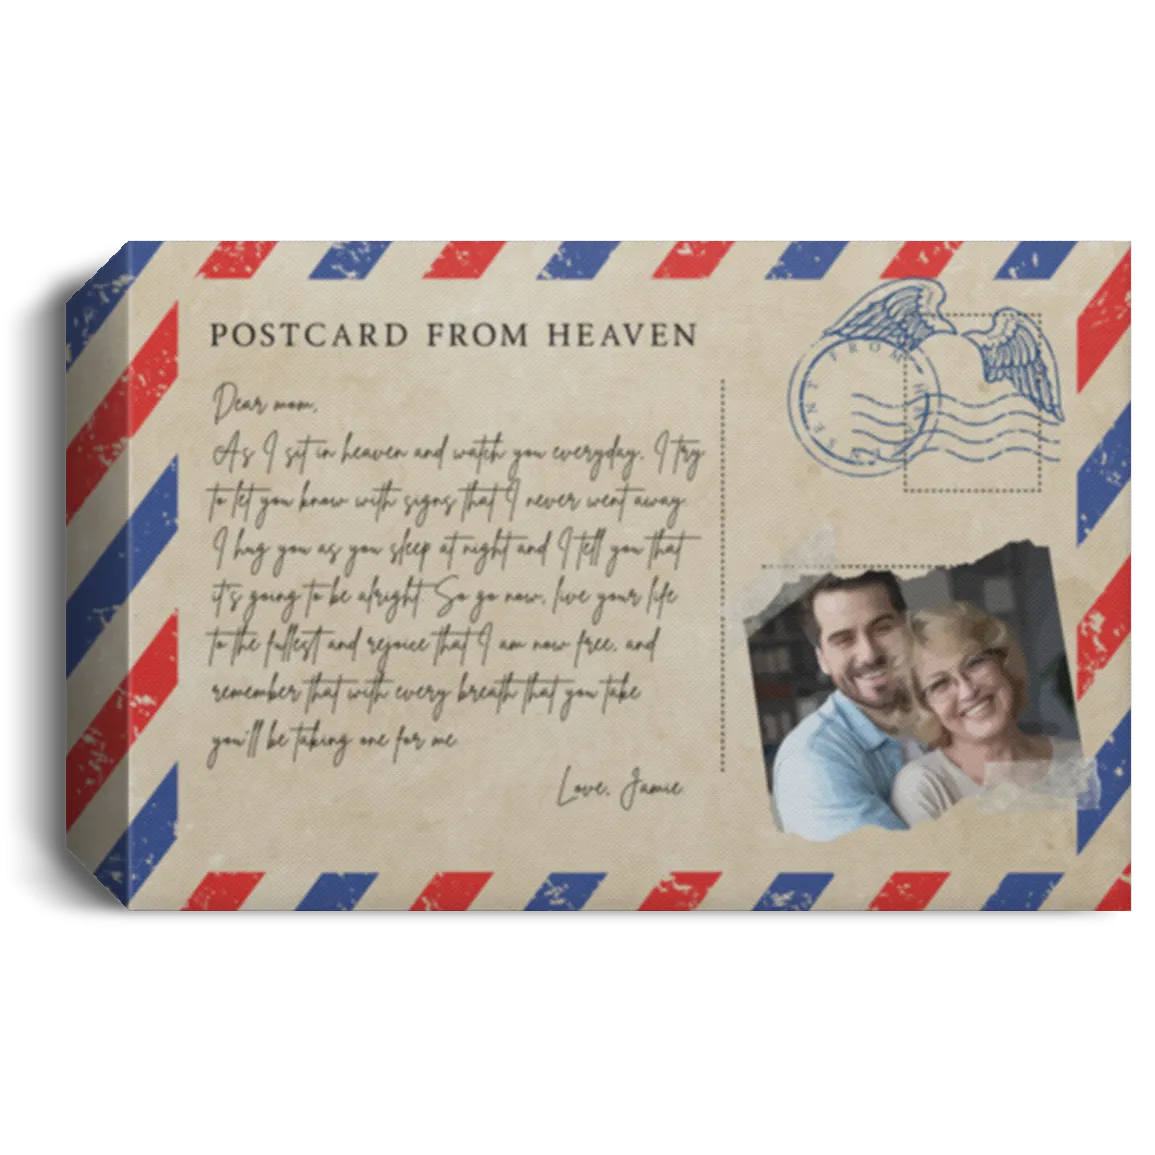 POSTCARD FROM HEAVEN
Dear mom,
As I sit in heaven and watch you everyday, I try
to let you know with signs that I never went away.
I hug you as you sleep at night and I tell you that
it's going to be alright. So go now, live your life
to the fullest and rejoice that I am now free, and
remember that with every breath that you take
you'll be taking one for me.
Love, Jamie.
SENT FROM